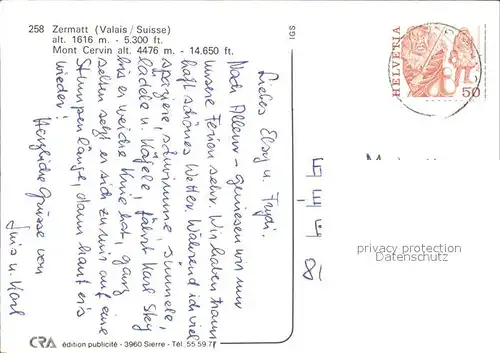 258 Zermatt (Valais / Suisse)
alt. 1616 m. - 5.300 ft.
Mont Cervin alt. 4476 m. - 14.650 ft.
IGS
HELVETIA
50
Liebes Elsy u. Trudi.
Nach Allem – geniesen wir nur
unsere Ferien sehr. Wir haben traum
haft schönes Wetter. Während ich viel
spaziere, schwimme,
lädele u. käfele, fährt Karl Sky
bis er weiche Knie hat, ganz
selten setzt er sich zu mir auf eine
Stumpenlänge, dann haut er's
wieder!
Herzliche Grüsse von
u. Karl
privacy protection
Datenschutz
CRA édition publicité - 3960 Sierre - Tél. 55 59 7